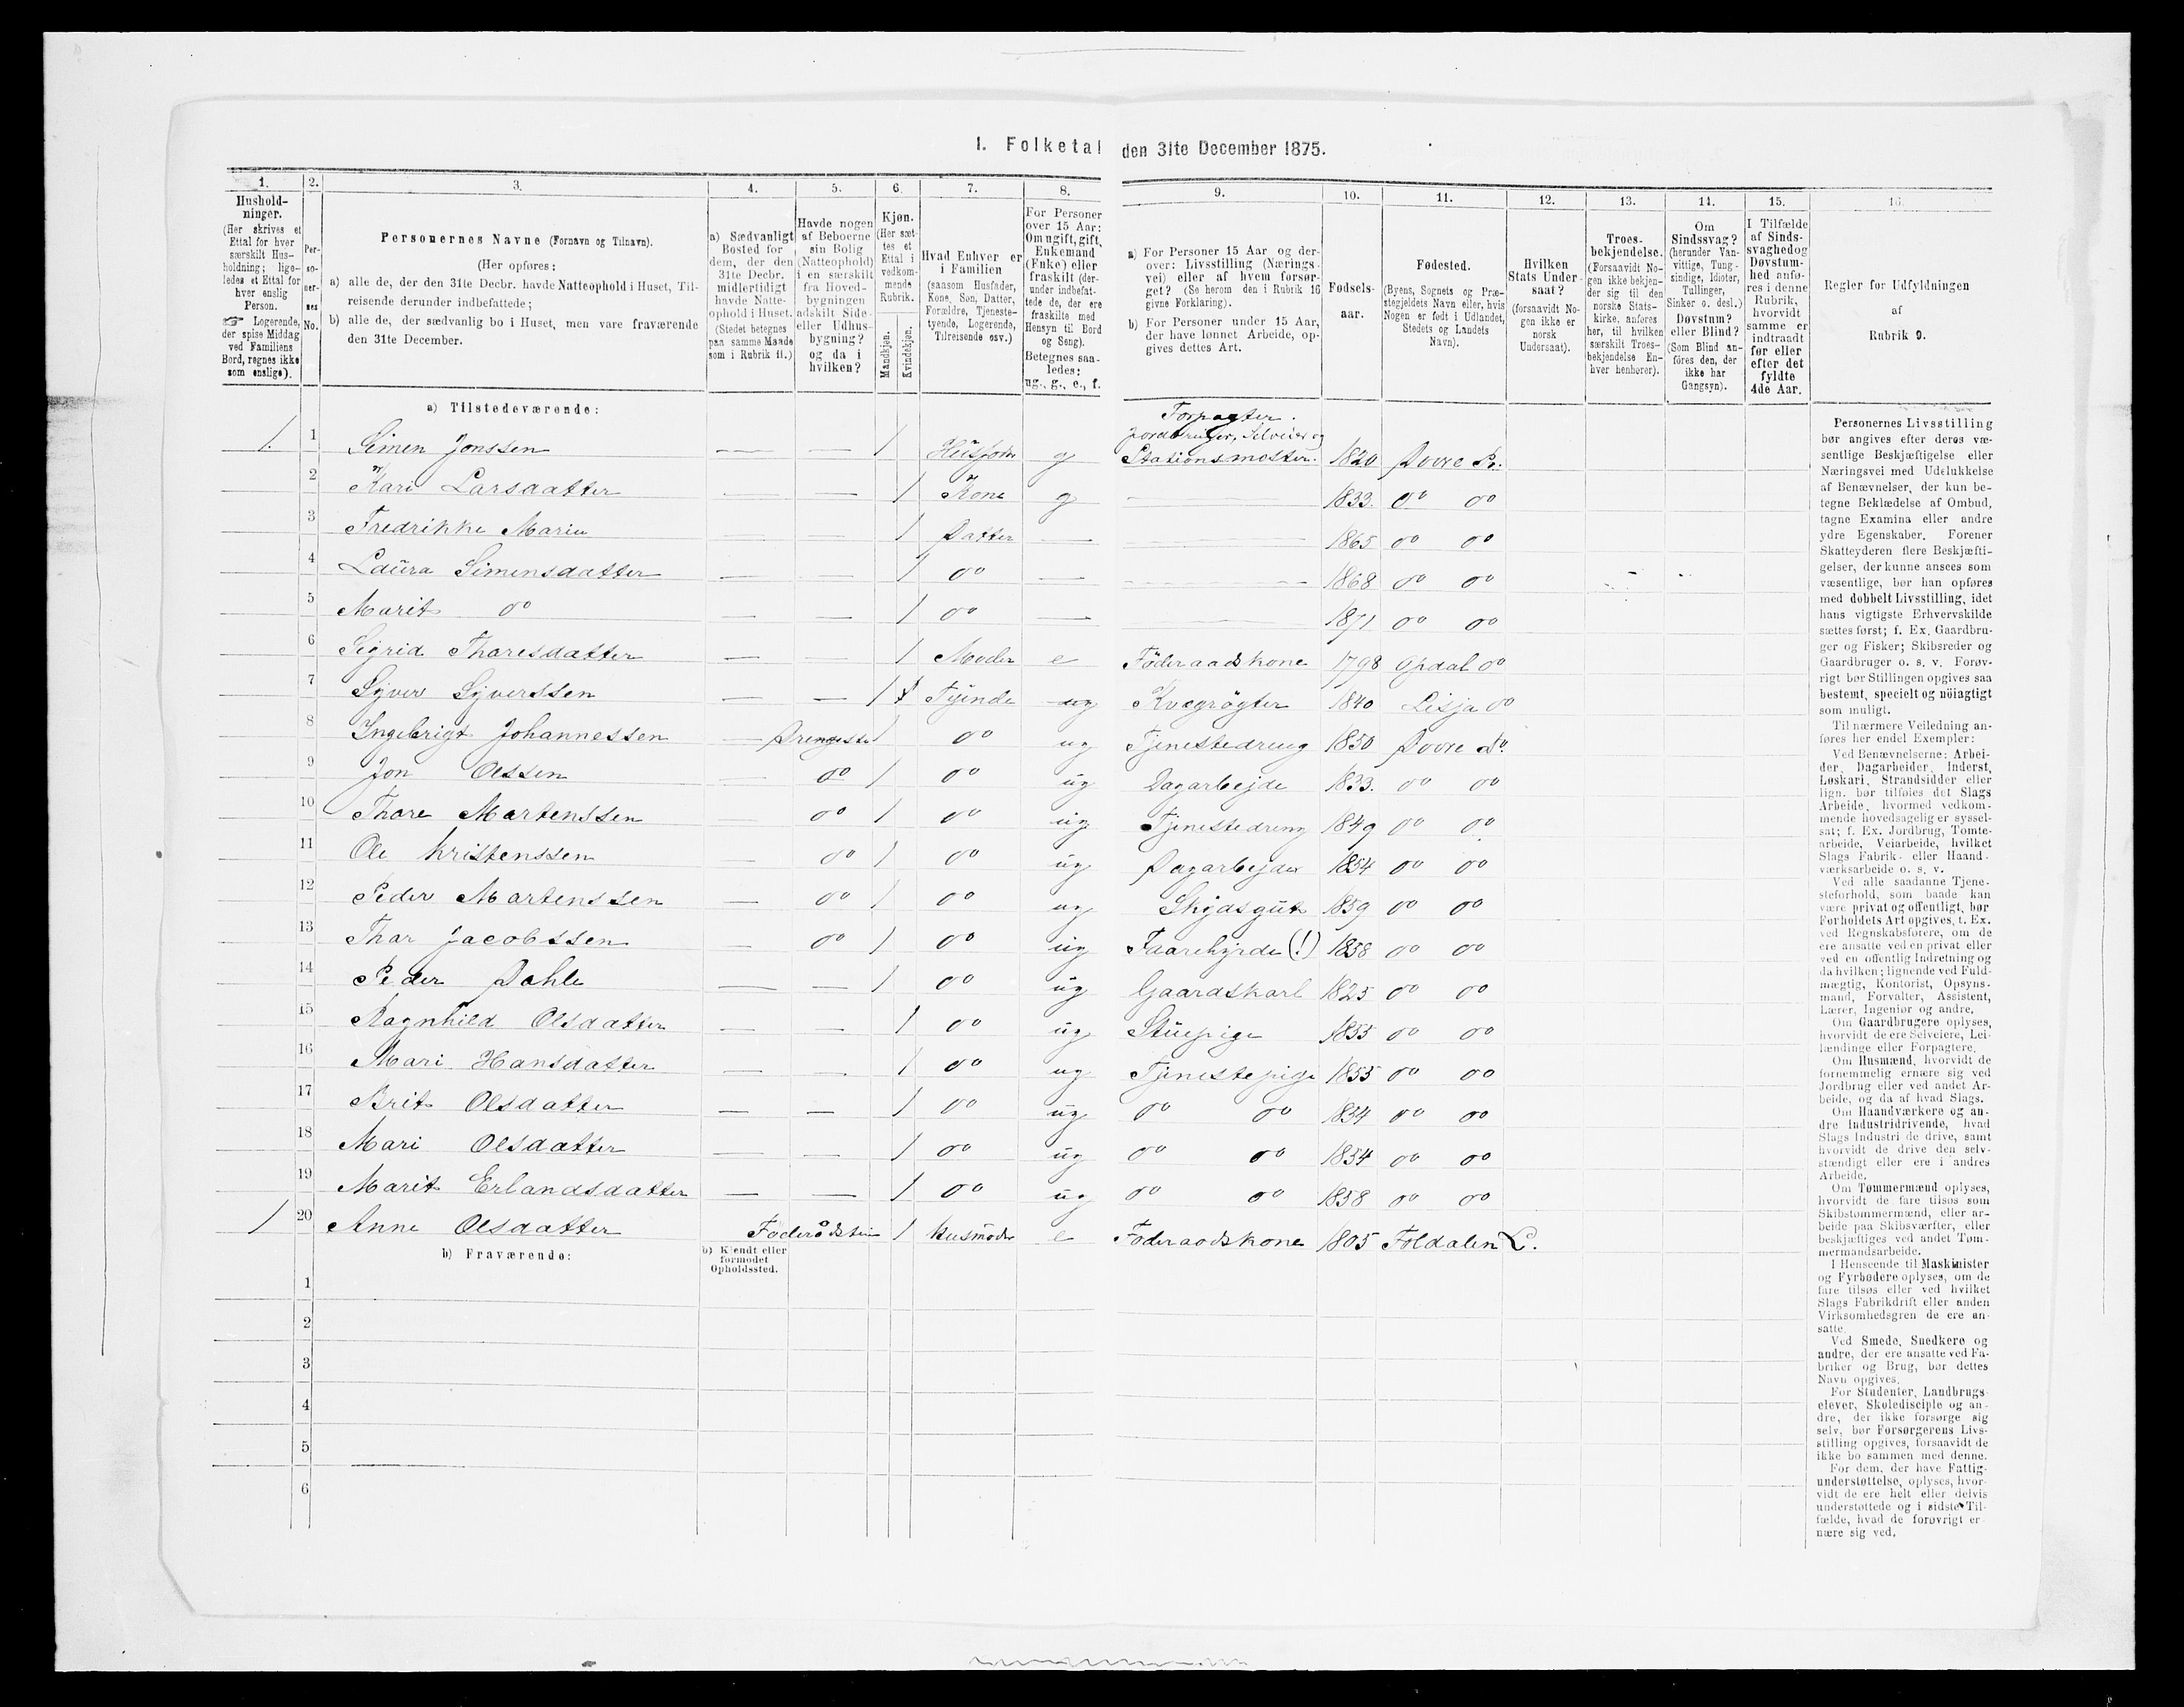 1. Folketal den 31te December 1875.
1. 2. 3. 4. 5. 6. 7. 8. 9. 10. 11. 12. 13. 14. 15. 16.
Hushold-
ninger.
(Her skrives et
Ettal for hver
særskilt Hus-
holdning; lige-
ledes et Ettal for
hver enslig
Person.
☞ Logerende,
der spise Middag
ved Familiens
Bord, regnes ikke
som enslige).
Per-
so-
ner-
nes
No.
Personernes Navne (Fornavn og Tilnavn).
(Her opføres:
a) alle de, der den 31te Decbr. havde Natteophold i Huset, Til-
reisende derunder indbefattede;
b) alle de, der sædvanlig bo i Huset, men vare fraværende
den 31te December.
a) Sædvanligt
Bosted for
dem, der den
31te Decbr.
midlertidigt
havde Natte-
ophold i Huset.
(Stedet betegnes
paa samme Maade
som i Rubrik 11.)
Havde nogen
af Beboerne
sin Bolig
(Natteophold)
i en særskilt
fra Hoved-
bygningen
adskilt Side-
eller Udhus-
bygning?
og da i
hvilken?
Kjøn.
(Her sæt-
tes et
Ettal i
vedkom-
mende
Rubrik.
Mandkjøn.
Kvindekjøn.
Hvad Enhver er
i Familien
(saasom Husfader,
Kone, Søn, Datter,
Forældre, Tjeneste-
tyende, Logerende,
Tilreisende osv.)
For Personer
over 15 Aar:
Om ugift, gift,
Enkemand
(Enke) eller
fraskilt (der-
under indbefat-
tede de, der ere
fraskilte med
Hensyn til Bord
og Seng).
Betegnes saa-
ledes:
ug., g., e., f.
a) For Personer 15 Aar og der-
over: Livsstilling (Nærings-
vei) eller af hvem forsør-
get? (Se herom den i Rubrik 16
givne Forklaring).
b) For Personer under 15 Aar,
der have lønnet Arbeide, op-
gives dettes Art.
Fødsels-
aar.
Fødested.
(Byens, Sognets og Præ-
stegjeldets Navn eller, hvis
Nogen er født i Udlandet,
Stedets og Landets
Navn).
Hvilken
Stats Under-
saat?
(forsaavidt No-
gen ikke er
norsk
Undersaat).
Troes-
bekjendelse.
(Forsaavidt No-
gen ikke bekjen-
der sig til den
norske Stats-
kirke, anføres
her, til hvilken
særskilt Troes-
bekjendelse En-
hver henhører).
Om
Sindssvag?
(herunder Van-
vittige, Tung-
sindige, Idioter,
Tullinger,
Sinker o. desl.)
Døvstum?
eller Blind?
(Som Blind an-
føres den, der
ikke har
Gangsyn).
I Tilfælde
af Sinds-
svaghed og
Døvstum-
hed anfø-
res i denne
Rubrik,
hvorvidt
samme er
indtraadt
før eller
efter det
fyldte
4de Aar.
Regler for Udfyldningen
af
Rubrik 9.
a) Tilstedeværende:
Forpagter.
Jordbruger, Selveier og
1. 1 Simen Jonssen — — 1 Husfader g Stationsmester. 1820 Dovre Pr.
2 Kari Larsdatter — — 1 Kone g — 1833. do do
3 Fredrikke Marie — — 1 Datter — — 1865 do do
4 Laura Simensdatter — — 1 do — — 1868 do do
5 Marit do — — 1 do — — 1871 do do
6 Sigrid Thoresdatter — — 1 Moder e Föderaadskone 1798 Opdal do
7 Syver Syverssen — — 1 Tyende ug Kvægrögter 1840 Lesja do
8 Ingebrigt Johannessen — Drengestu 1 do ug Tjenestedreng 1850 Dovre Do.
9 Jon Olssen — do 1 do ug Dagarbejde 1833. do do
10 Thore Martenssen do 1 do ug Tjenestedreng 1849 do do
11 Ole Kristenssen — do 1 do ug Dagarbejder 1854 do do
12 Peder Martenssen — do 1 do ug Skydsgut 1859 do do
13 Thor Jacobssen — do 1 do ug Faarehyrde (!) 1858 do do
14 Peder Dahle — — 1 do ug Gaardskarl 1825 do do
15 Ragnhild Olsdatter — — 1 do ug Stuepige 1855 do do
16 Mari Hansdatter — — 1 do ug Tjenestepige 1855 do do
17 Brit Olsdatter — — 1 do ug do do 1854 do do
18 Mari Olsdatter — — 1 do ug do do 1854 do do
19 Marit Erlandsdatter — — 1 do ug do do 1858 do do
1 20 Anne Olsdatter 1 Husmoder e Föderaadskone 1805 Foldalen L.
b) Fraværende:
b) Kjendt eller
formodet
Opholdssted.
1
2
3
4
5
6
Personernes Livsstilling
bør angives efter deres væ-
sentlige Beskjæftigelse eller
Næringsvei med Udelukkelse
af Benævnelser, der kun be-
tegne Beklædelse af Ombud,
tagne Examina eller andre
ydre Egenskaber. Forener
Skatteyderen flere Beskjæfti-
gelser, der kunne ansees som
væsentlige, bør han opføres
med dobbelt Livsstilling, idet
hans vigtigste Erhvervskilde
sættes først; f. Ex. Gaardbru-
ger og Fisker; Skibsreder og
Gaardbruger o. s. v. Forøv-
rigt bør Stillingen opgives saa
bestemt, specielt og nöiagtigt
som muligt.
Til nærmere Veiledning an-
føres her endel Exempler:
Ved Benævnelserne: Arbei-
der, Dagarbeider, Inderst,
Løskari, Strandsidder eller
lign. bør tilføies det Slags
Arbeide, hvormed vedkom-
mende hovedsagelig er syssel-
sat; f. Ex. Jordbrug, Tomte-
arbeide, Veiarbeide, hvilket
Slags Fabrik- eller Haand-
værksarbeide o. s. v.
Ved alle saadanne Tjene-
steforhold, som baade kan
være privat og offentligt, bør
Forholdets Art opgives, t. Ex.
ved Regnskabsførere, om de
ere ansatte ved en privat eller
ved en offentlig Indretning og
da hvilken; lignende ved Fuld-
mægtig, Kontorist, Opsyns-
mand, Forvalter, Assistent,
Lærer, Ingeniør og andre.
Om Gaardbrugere oplyses,
hvorvidt de ere Selveiere, Lei-
lændinge eller Forpagtere.
Om Husmænd, hvorvidt de
fornemmelig ernære sig ved
Jordbrug eller ved andet Ar-
beide, og da af hvad Slags.
Om Haandværkere og an-
dre Industridrivende, hvad
Slags Industri de drive, samt
hvorvidt de drive den selv-
stændigt eller ere i andres
Arbeide.
Om Tømmermænd oplyses,
hvorvidt de fare tilsøs som
Skibstømmermænd, eller ar-
beide paa Skibsværfter, eller
beskjæftiges ved andet Tøm-
mermandsarbeide.
I Henseende til Maskinister
og Fyrbødere oplyses, om de
fare tilsøs eller ved hvilket
Slags Fabrikdrift eller anden
Virksomhedsgren de ere an-
satte.
Ved Smede, Snedkere og
andre, der ere ansatte ved Fa-
briker og Brug, bør dettes
Navn opgives.
For Studenter, Landbrugs-
elever, Skoledisciple og an-
dre, der ikke forsørge sig
selv, bør Forsørgerens Livs-
stilling opgives, forsaavidt de
ikke bo sammen med denne.
For dem, der have Fattig-
understøttelse, oplyses, hvor-
vidt de ere helt eller delvis
understøttede og i sidste Til-
fælde, hvad de forøvrigt er-
nære sig ved.